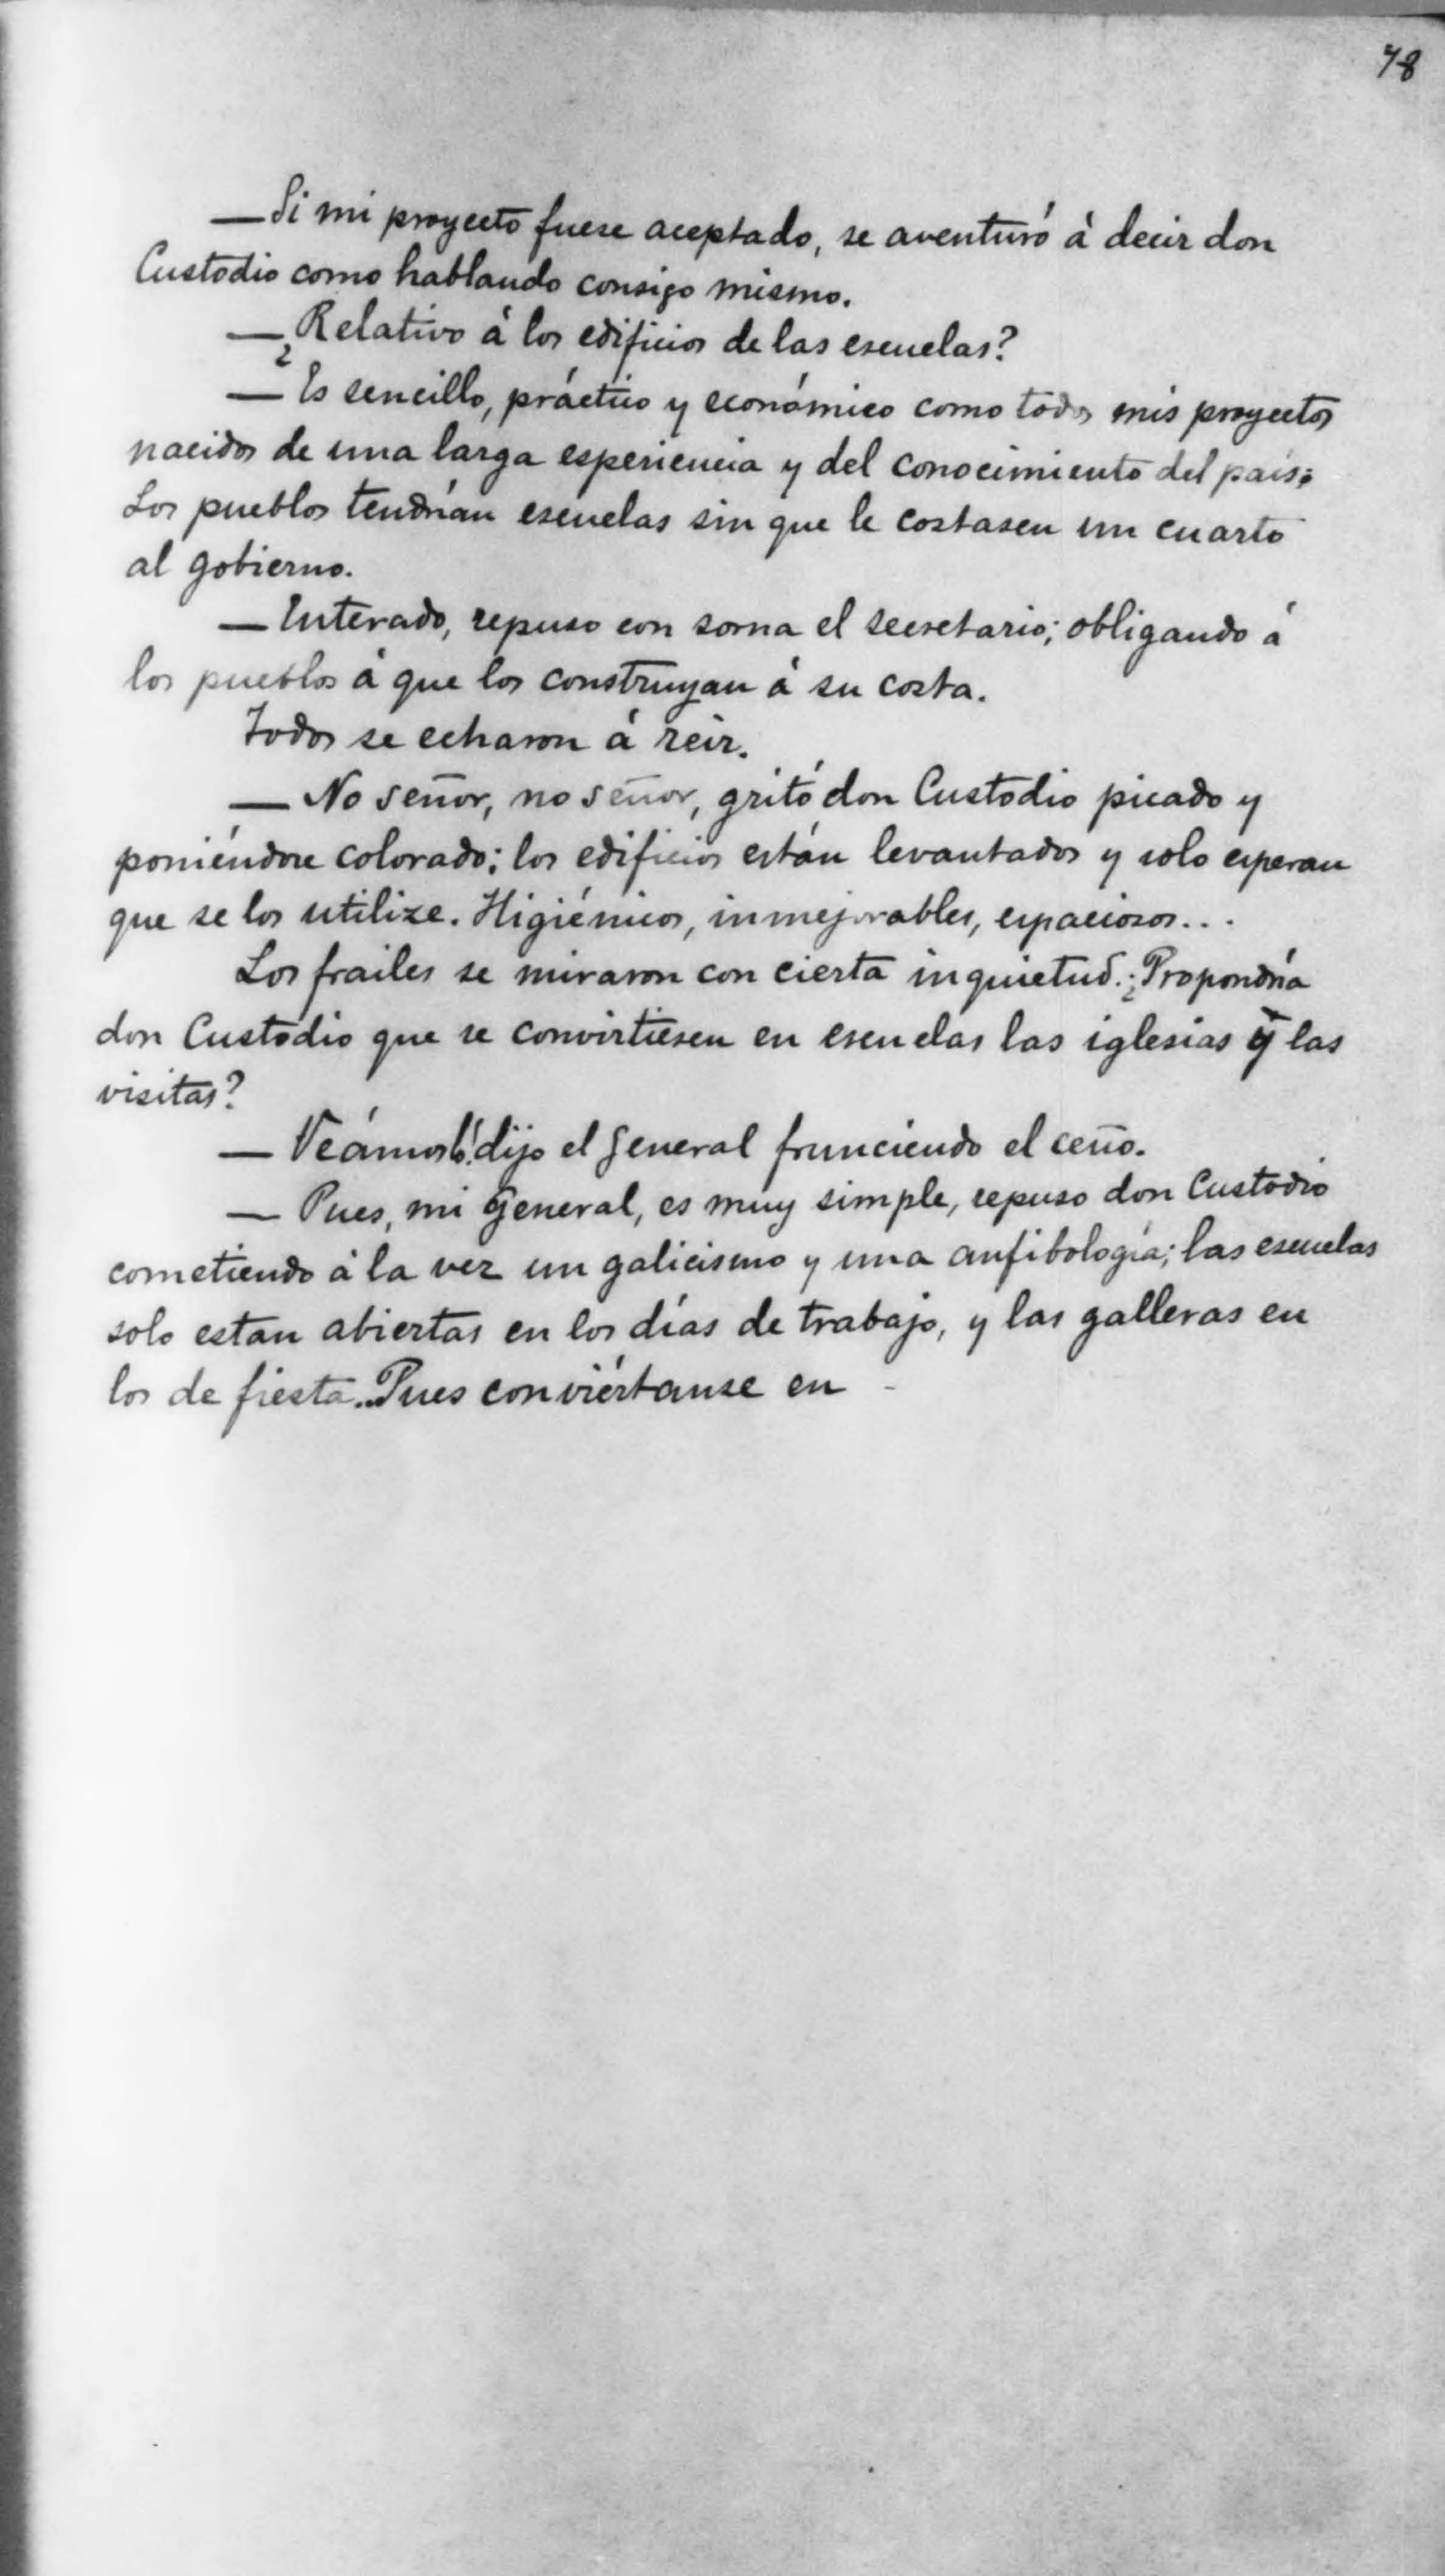 78
—Si mi proyecto fuese aceptado, se aventuró á decir don
Custodio como hablando consigo mismo.
—¿Relativo á los edificios de las escuelas?
—Es sencillo, práctico y económico como todos mis proyectos
nacidos de una larga esperiencia y del conocimiento del país;
Los pueblos tendrían escuelas sin que le costasen un cuarto
al gobierno.
—Enterado, repuso con sorna el secretario; obligando á
los pueblos á que los construyan á su costa.
Todos se echaron á reir.
—No señor, no señor, gritó don Custodio picado y
poniéndose colorado; los edificios están levantados y solo esperan
que se los utilize. Higiénicos, inmejorables, espaciosos...
Los frailes se miraron con cierta inquietud. ¿Propondría
don Custodio que se convirtiesen en escuelas las iglesias y las
visitas?
—Veámoslo! dijo el General frunciendo el ceño.
—Pues, mi General, es muy simple, repuso don Custodio
cometiendo á la vez un galicismo y una anfibología; las escuelas
solo estan abiertas en los días de trabajo, y las galleras en
los de fiesta.. Pues conviértanse en